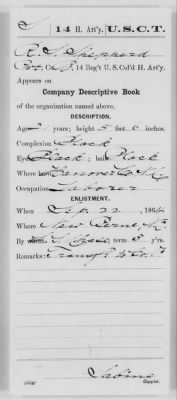 S | 14 H. Art'y. | U.S.C.T.
R. S. Sheppard
Co. B, 14 Reg't U. S. Col'd H. Art'y.
Appears on
Company Descriptive Book
of the organization named above.
DESCRIPTION.
Age years; height 5 feet 6 inches.
Complexion Black
Eyes Black; hair Black
Where Hanover Co.
Occupation Laborer
ENLISTMENT.
When Sep. 22, 1864
Where New Berne, N.C.
By whom ; term 3 y'rs.
Remarks: Transf'd to Co.
Copyist.